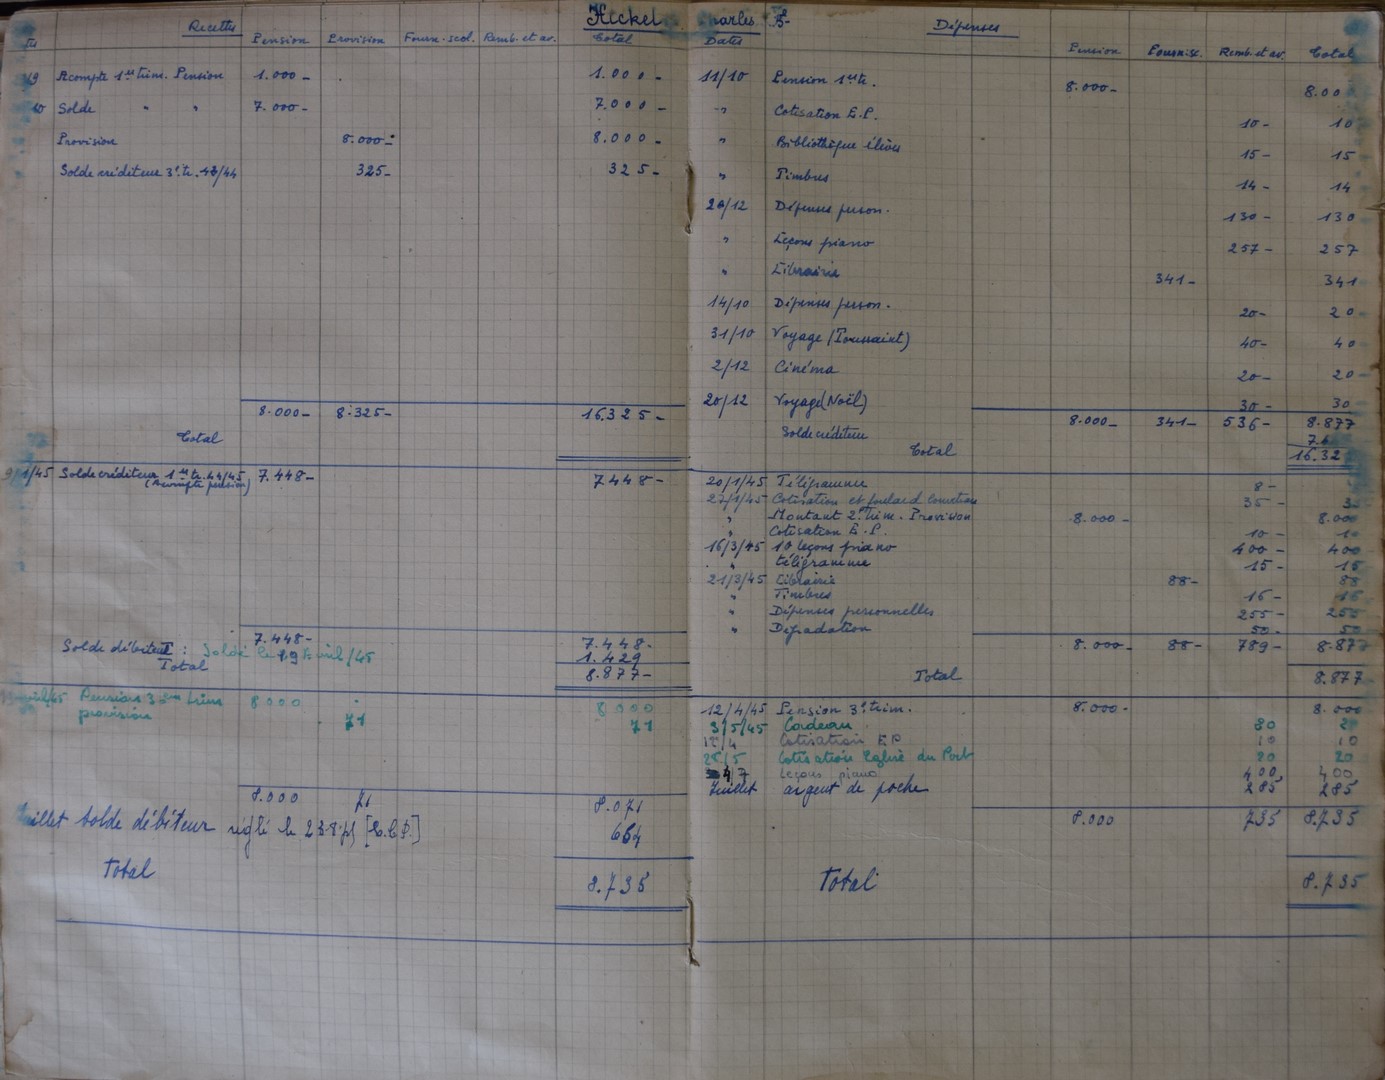 Hickel Charles
Recettes
Pension Provision Fourn. scol. Remb. et av. Total
Acompte 1er trim. Pension 1.000- 1.000-
Solde " " 7.000- 7.000-
Provision 8.000- 8.000-
Solde créditeur 3e tr. 43/44 325- 325-
8.000- 8.325- 16.325-
Total
9/1/45 Solde créditeur 1er tr. 44/45 7.448- 7448-
(Acompte pension)
7.448- 7.448-
Solde débiteur : Soldé le 19 Avril/45 1.429
Total 8.877-
Pension 3ème trim 8000 8000
provision 71 71
8.000 71 8.071
Juillet Solde débiteur réglé le [C.C.P.] 664
Total 8.735
Dépenses
Dates Pension Fourn. sc. Remb. et av. Total
11/10 Pension 1er tr. 8.000- 8.00
" Cotisation E.P. 10- 10
" Bibliothèque élèves 15- 15
" Timbres 14- 14
20/12 Dépenses person. 130- 130
" Leçons piano 257- 257
" Librairie 341- 341
14/10 Dépenses person. 20- 20-
31/10 Voyage (Toussaint) 40- 40
2/12 Cinéma 20- 20-
20/12 Voyage (Noël) 30- 30
8.000- 341- 536- 8.877
Solde créditeur 7.4
Total 16.32
20/1/45 Télégramme 8-
27/1/45 Cotisation et foulard 35- 3
" Montant 2e trim. Provision 8.000- 8.000
" Cotisation E.P. 10- 10
16/3/45 10 leçons piano 400- 400
" télégramme 15- 15
21/3/45 Librairie 88- 88
" Timbres 16- 16
" Dépenses personnelles 255- 255
" Dégradation 50- 50
8.000- 88- 789- 8.877
Total 8.877
12/4/45 Pension 3e trim. 8.000- 8.000
3/5/45 Cordeau 20 2
12/4 Cotisation E.P. 10 10
25/5 Cotisation Eglise du Port 20 20
4/7 Leçons piano 400 400
Juillet argent de poche 285 285
8.000 735 8.735
Total 8.735